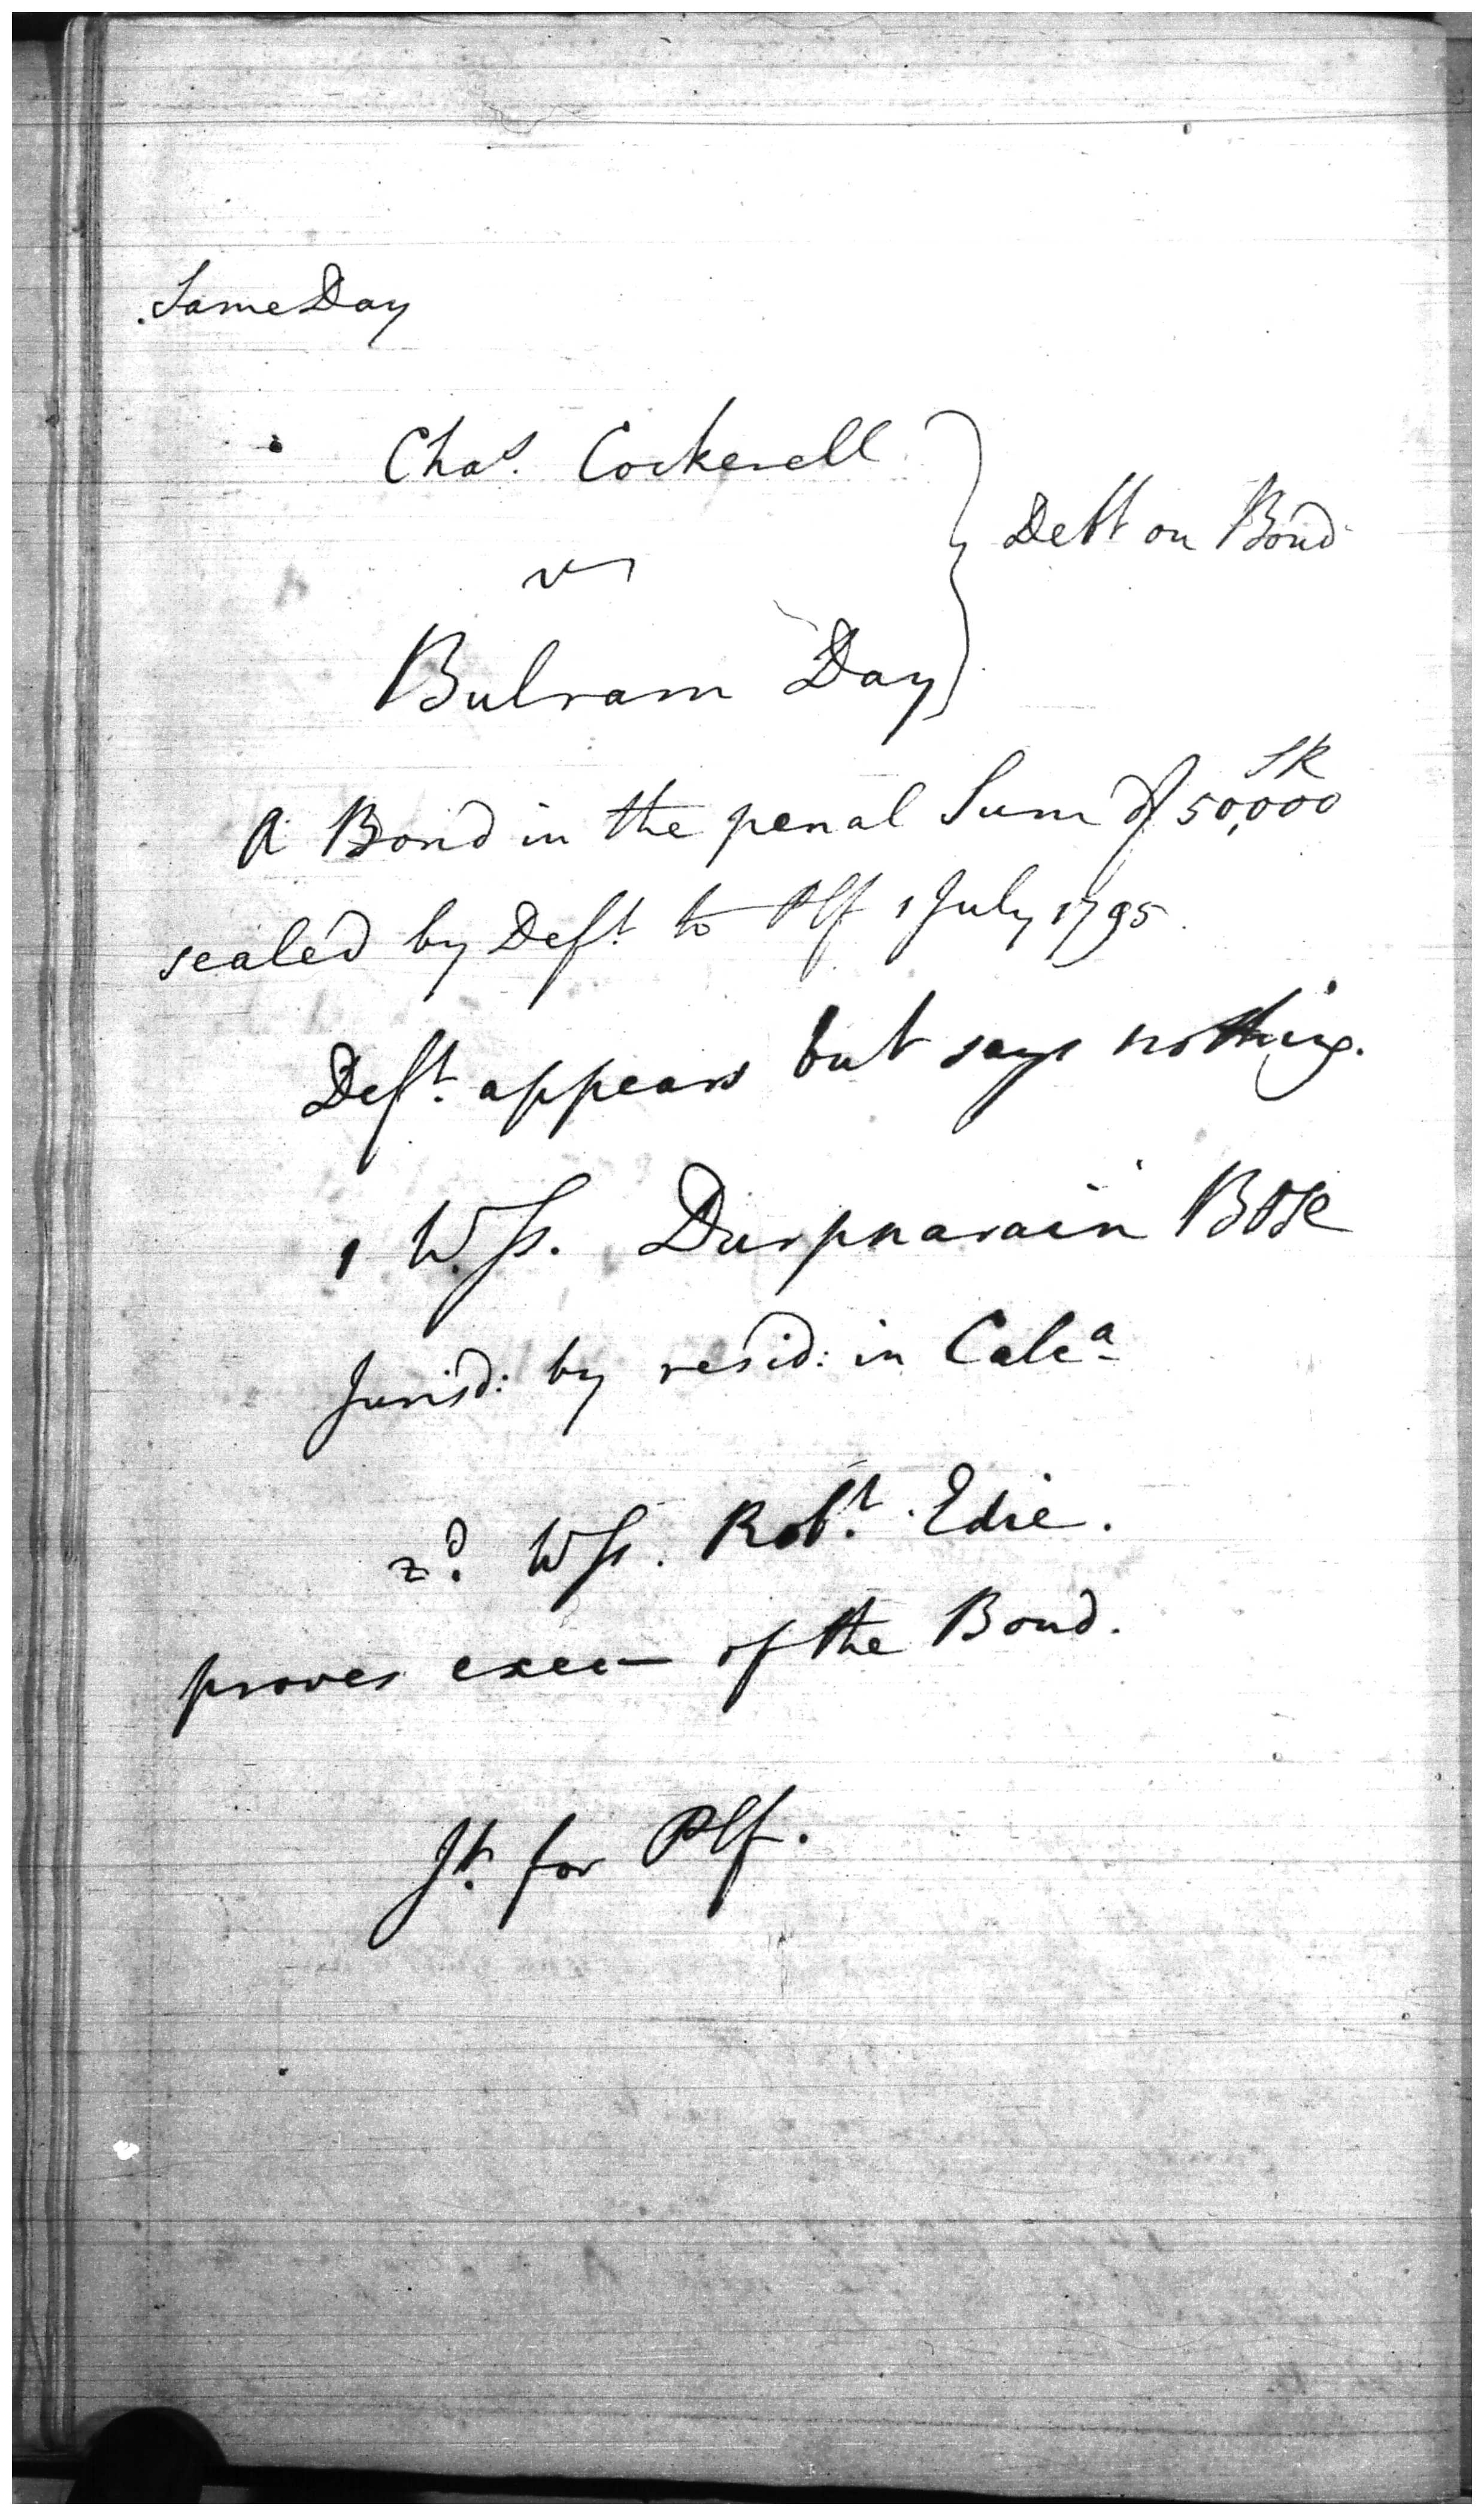 Same Day
Chas. Cockerell
vs
Debt on Bond
Bulram Day
A Bond in the penal Sum of SR 50,000
sealed by Deft. to Plf 1 July 1795.
Deft. appears but says nothing.
1 Wss. Durpnarain Bose
Jurisd: by resid: in Calca
2d. Wss. Robt. Edie.
proves exec— of the Bond.
Jt. for Plf.